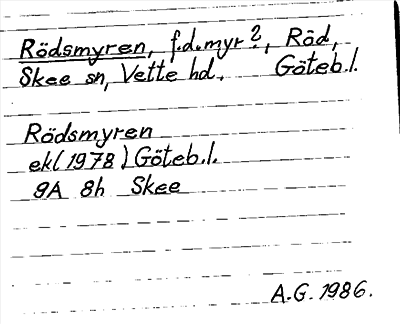 Rödsmyren, f.d. myr?, Röd,
Skee sn, Vette hd. Göteb.l.
Rödsmyren
ek(1978) Göteb.l.
9A 8h Skee
A.G. 1986.